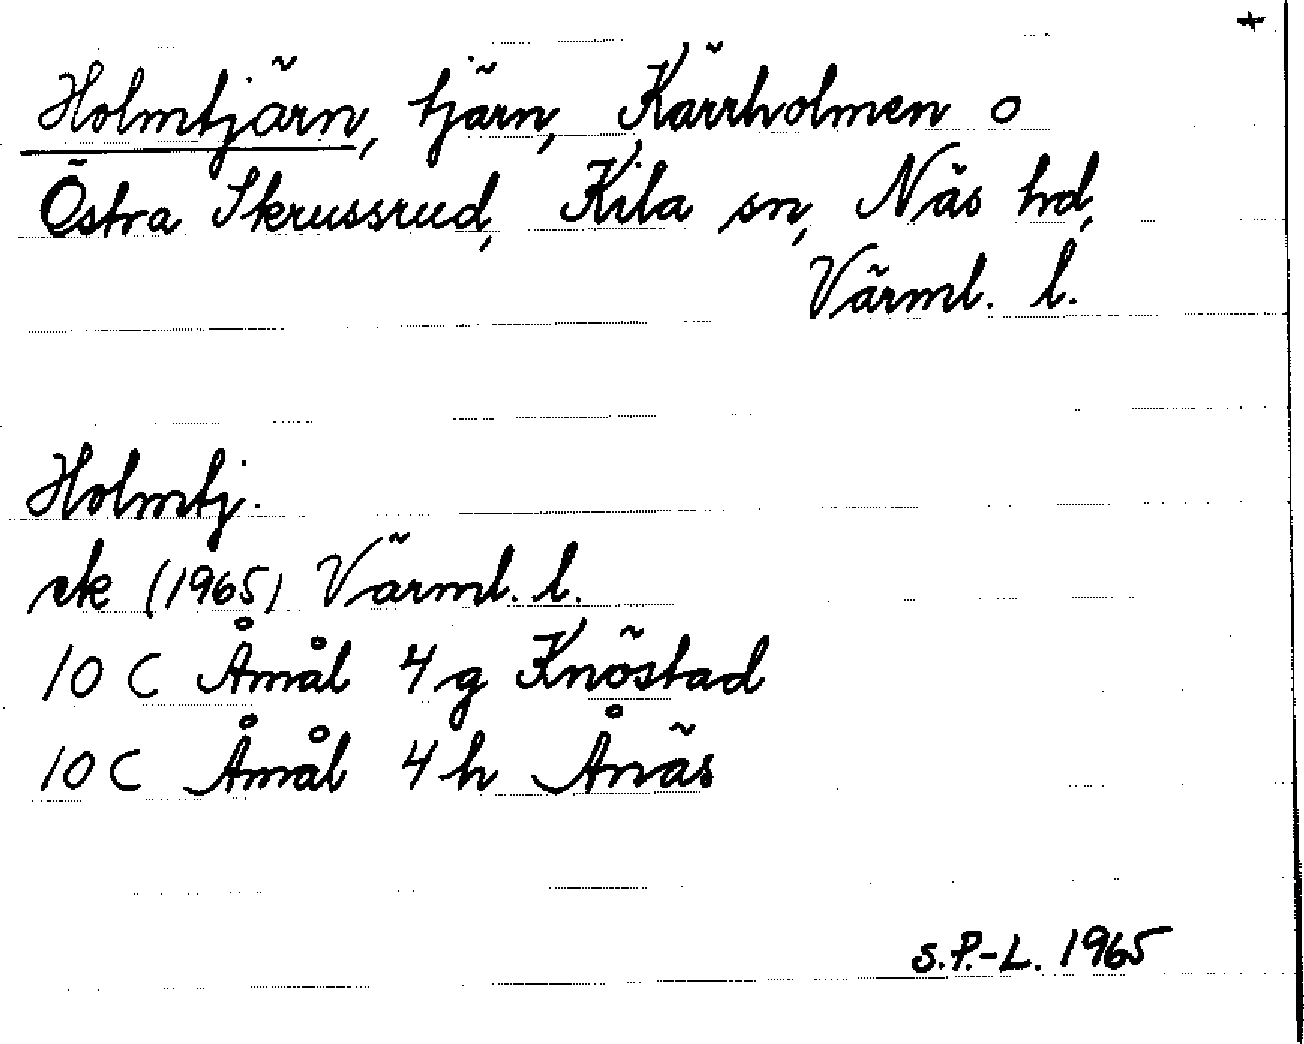 +
Holmtjärn, tjärn, Kärrholmen o
Östra Skrussrud, Kila sn, Näs hd,
Värml. l.
Holmtj.
ek (1965) Värml. l.
10 C Åmål 4 g Knöstad
10 C Åmål 4 h Ånäs
S.P.-L. 1965